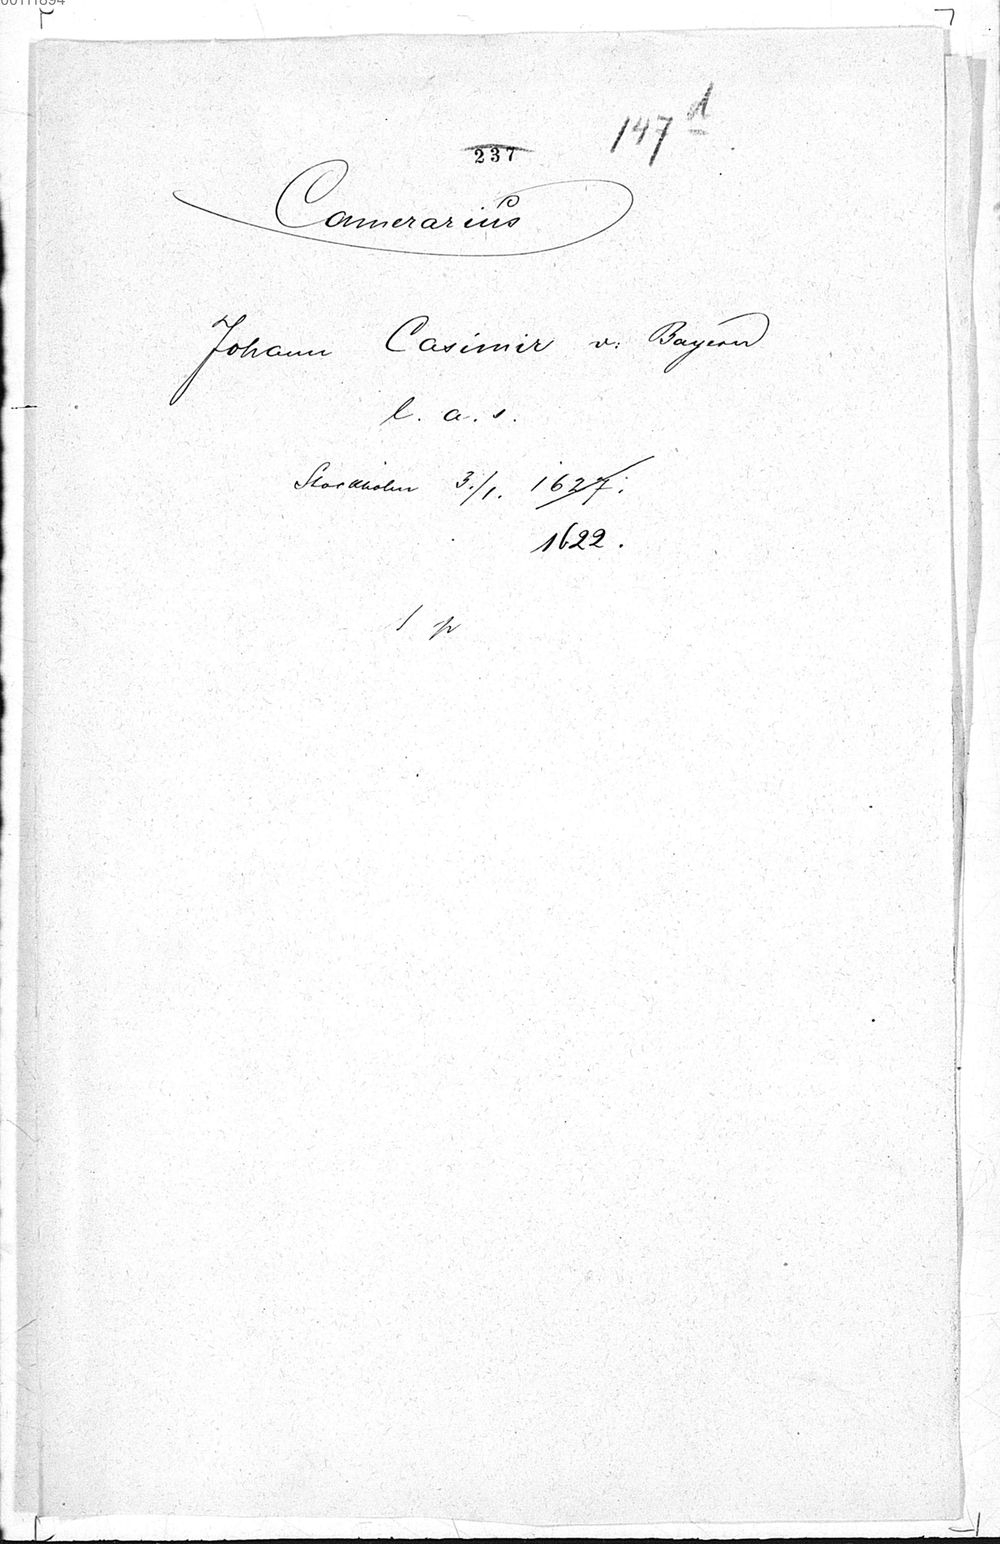 00111894
147 d
237
Camerarius
Johann Casimir v. Bayern
l. a. s.
Stockholm 3./1. 1627.
1622.
1 p